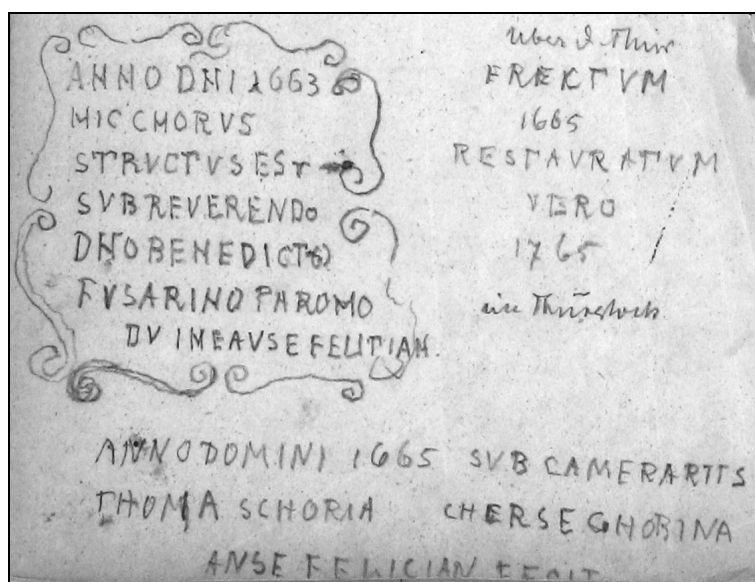 ANNO DNI 1663
HIC CHORVS
STRVCTVS EST
SVB REVERENDO
DNO BENEDICTO
FVSARINO PAROMO
DV IMEAVSE FELITIAN.
über d. Thür
EREKTVM
1665
RESTAVRATVM
VERO
1765
im Thürstock
ANNO DOMINI 1665 SVB CAMERARTIS
THOMA SCHORIA CHERSE GHOBINA
ANSE FELICIAN FECIT